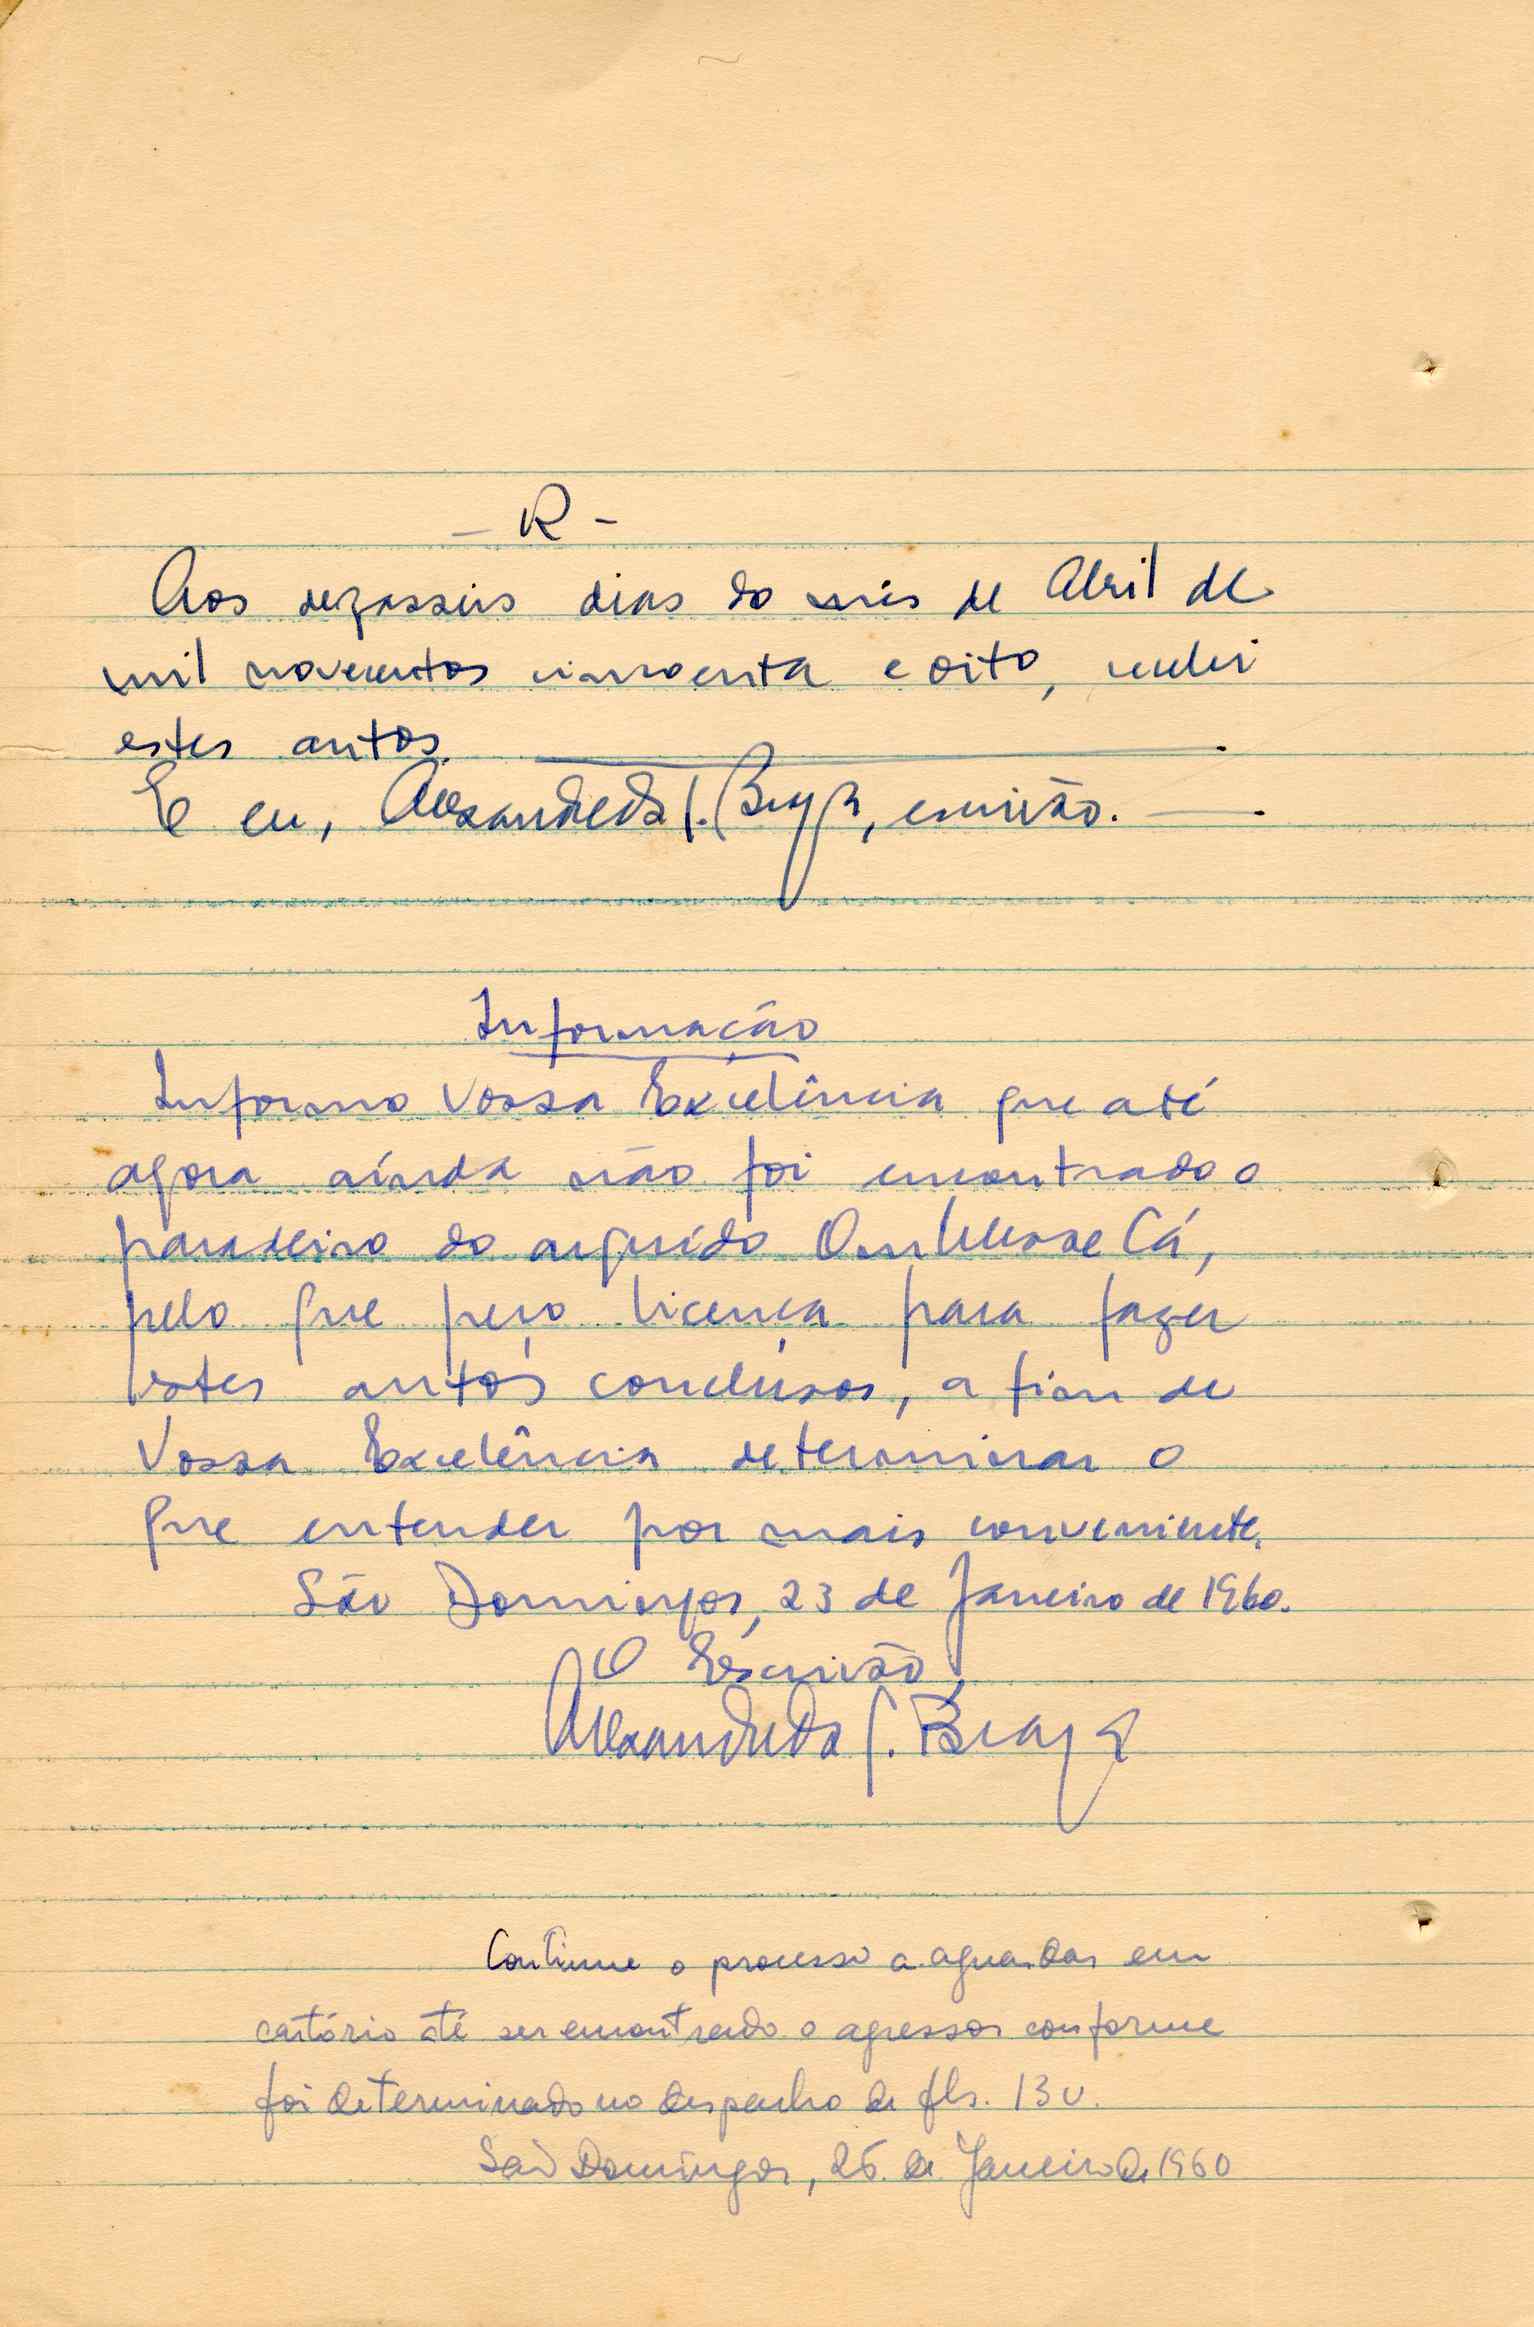 - R -
Aos dezasseis dias do mês de Abril de
mil novecentos cincoenta e oito, recebi
estes autos.
E eu, Alexandre da S. Braga, escrivão.
Informação
Informo Vossa Excelência que até
agora ainda não foi encontrado o
paradeiro do arguido Cá,
pelo que peço licença para fazer
estes autos conclusos, a fim de
Vossa Excelência determinar o
que entender por mais conveniente.
São Domingos, 23 de Janeiro de 1960.
O Escrivão,
Alexandre da S. Braga
Continue o processo a aguardar em
cartório até ser encontrado o agressor conforme
foi determinado no despacho de fls. 13 v.
São Domingos, 26 de Janeiro de 1960